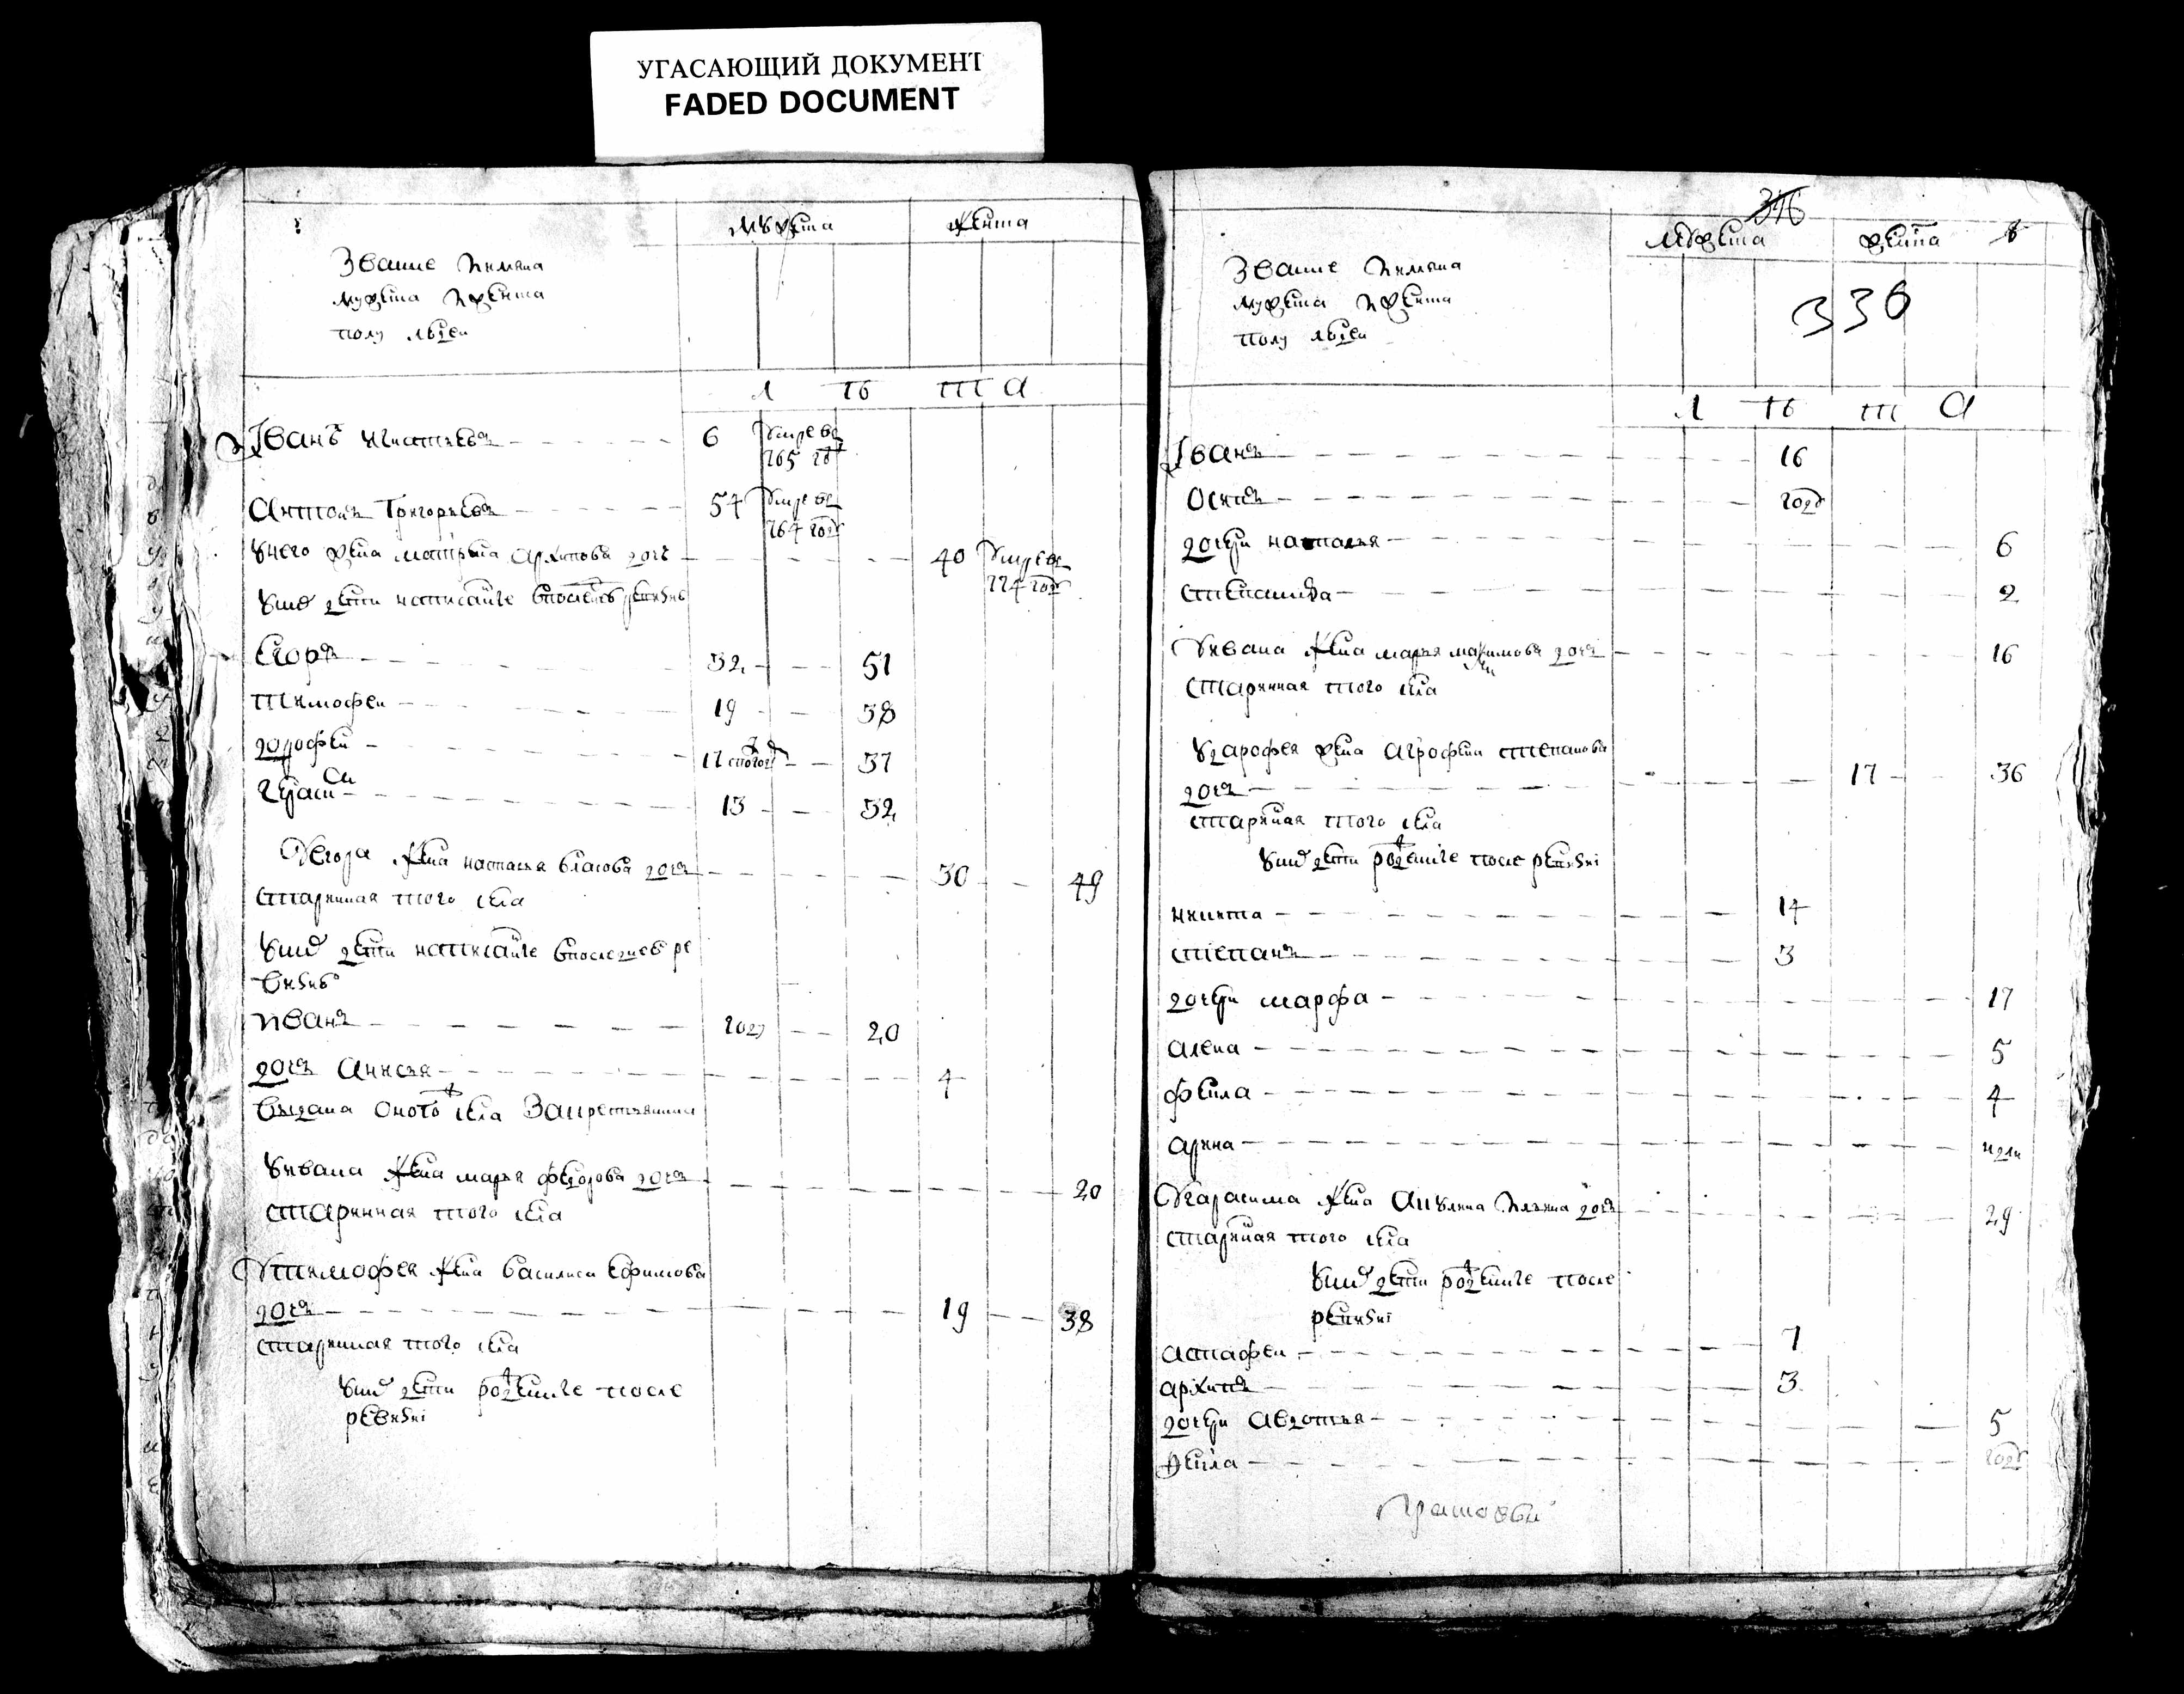 УГАСАЮЩИЙ ДОКУМЕНТ
FADED DOCUMENT
мужеска женска
Звание и имяна
мужеска и женска
полу людеи
л ѣ т а
Іванъ 6 умре въ
765 год
Антонъ Григорьевъ 54 умре въ
764 году
у него жена матрена архипова дочь 40 умре въ
774 году
у них дети написанные в последнеи ревизии
Егоръ 32 51
тимофеи 19 38
дорофеи 17 37
гераси 13 32
У егора жена настасья власова дочь 30 49
старинная того села
у них дети написанные в последнеи ре
визии
иванъ году 20
дочь Анисья 4
выдана оного села за крестьянина
у ивана жена марья федорова дочь 20
старинная того села
У тимофея жена василиса ефимова
дочь 19 38
старинная того села
у них дети рожденные после
ревизии
346
мужеска женска
Звание и имяна
мужеска и женска
полу людеи
336
л ѣ т а
Іванъ 16
Осипъ году
дочери настасья 6
степанида 2
У ивана жена марья максимова дочь 16
старинная того села
у дарофея жена агрофена степанова
дочь 17 36
старинная того села
у них дети рожденные после ревизии
никита 14
степанъ 3
дочери марфа 17
алена 5
фекла 4
арина недели
У гарасима жена акулина ильина дочь 29
старинная того села
у них дети рожденные после
ревизии
астафеи 7
архипъ 3
дочери авдотья 5
фекла году